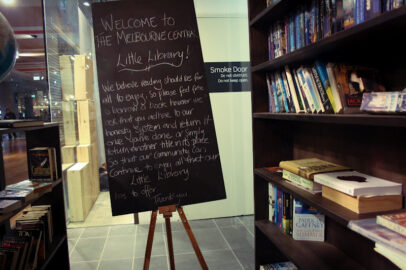 Welcome to
The Melbourne Central
Little Library!
We believe reading should be for
all to enjoy, so please feel free
to borrow a book however we
ask that you adhere to our
honesty system and return it
once you're done or simply
return another title in its place
so that our community can
continue to enjoy all that our
Little Library
has to offer.
Thank you
Smoke Door
Do not obstruct
Do not keep open
PATRICK
GAFFNEY